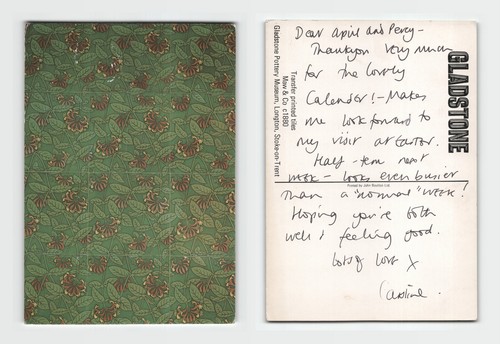 Dear April and Percy -
Thankyou very much
for the lovely
Calender! - Makes
me look forward to
my visit at Easter.
Half-term next
week - looks even busier
than a "normal" WEEK!
Hoping you're both
well & feeling good.
Lots of love X
Caroline.
GLADSTONE
Transfer printed tiles
Maw & Co c1880
Gladstone Pottery Museum, Longton, Stoke-on-Trent
Printed by John Bourton Ltd.